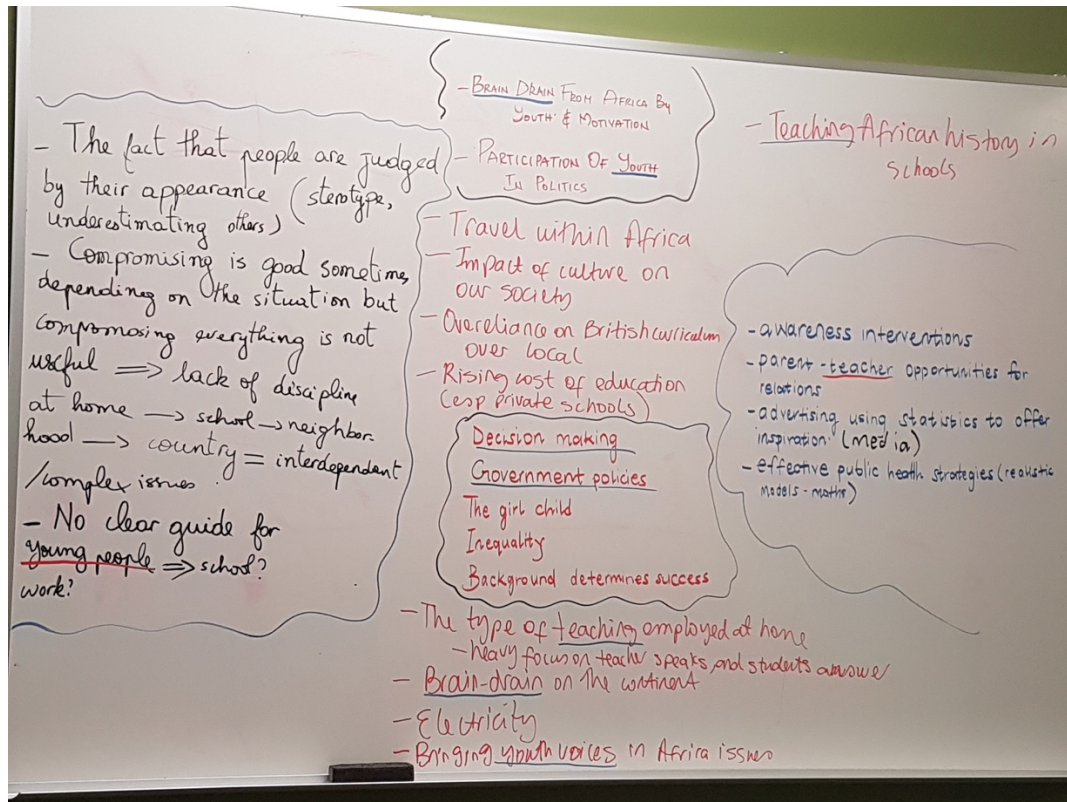 - The fact that people are judged
by their appearance (sterotype,
underestimating others)
- Compromising is good sometime,
depending on the situation but
compromosing everything is not
useful ⟹ lack of discipline
at home → school → neighbor-
hood → country = interdependant
/complex issues.
- No clear guide for
young people ⟹ school?
work?
- BRAIN DRAIN FROM AFRICA BY
YOUTH & MOTIVATION
- PARTICIPATION OF YOUTH
IN POLITICS
- Travel within Africa
- Impact of culture on
our society
- Overeliance on British curriculum
over local
- Rising cost of education
(esp private schools)
Decision making
Government policies
The girl child
Inequality
Background determines success
- The type of teaching employed at home
- heavy focus on teacher speaks, and students answer
- Brain-drain on the continent
- Electricity
- Bringing youth voices in Africa issues
- Teaching African history in
schools
- awareness interventions
- parent-teacher opportunities for
relations
- advertising using statistics to offer
inspiration (media)
- effective public health strategies (realistic
models - maths)